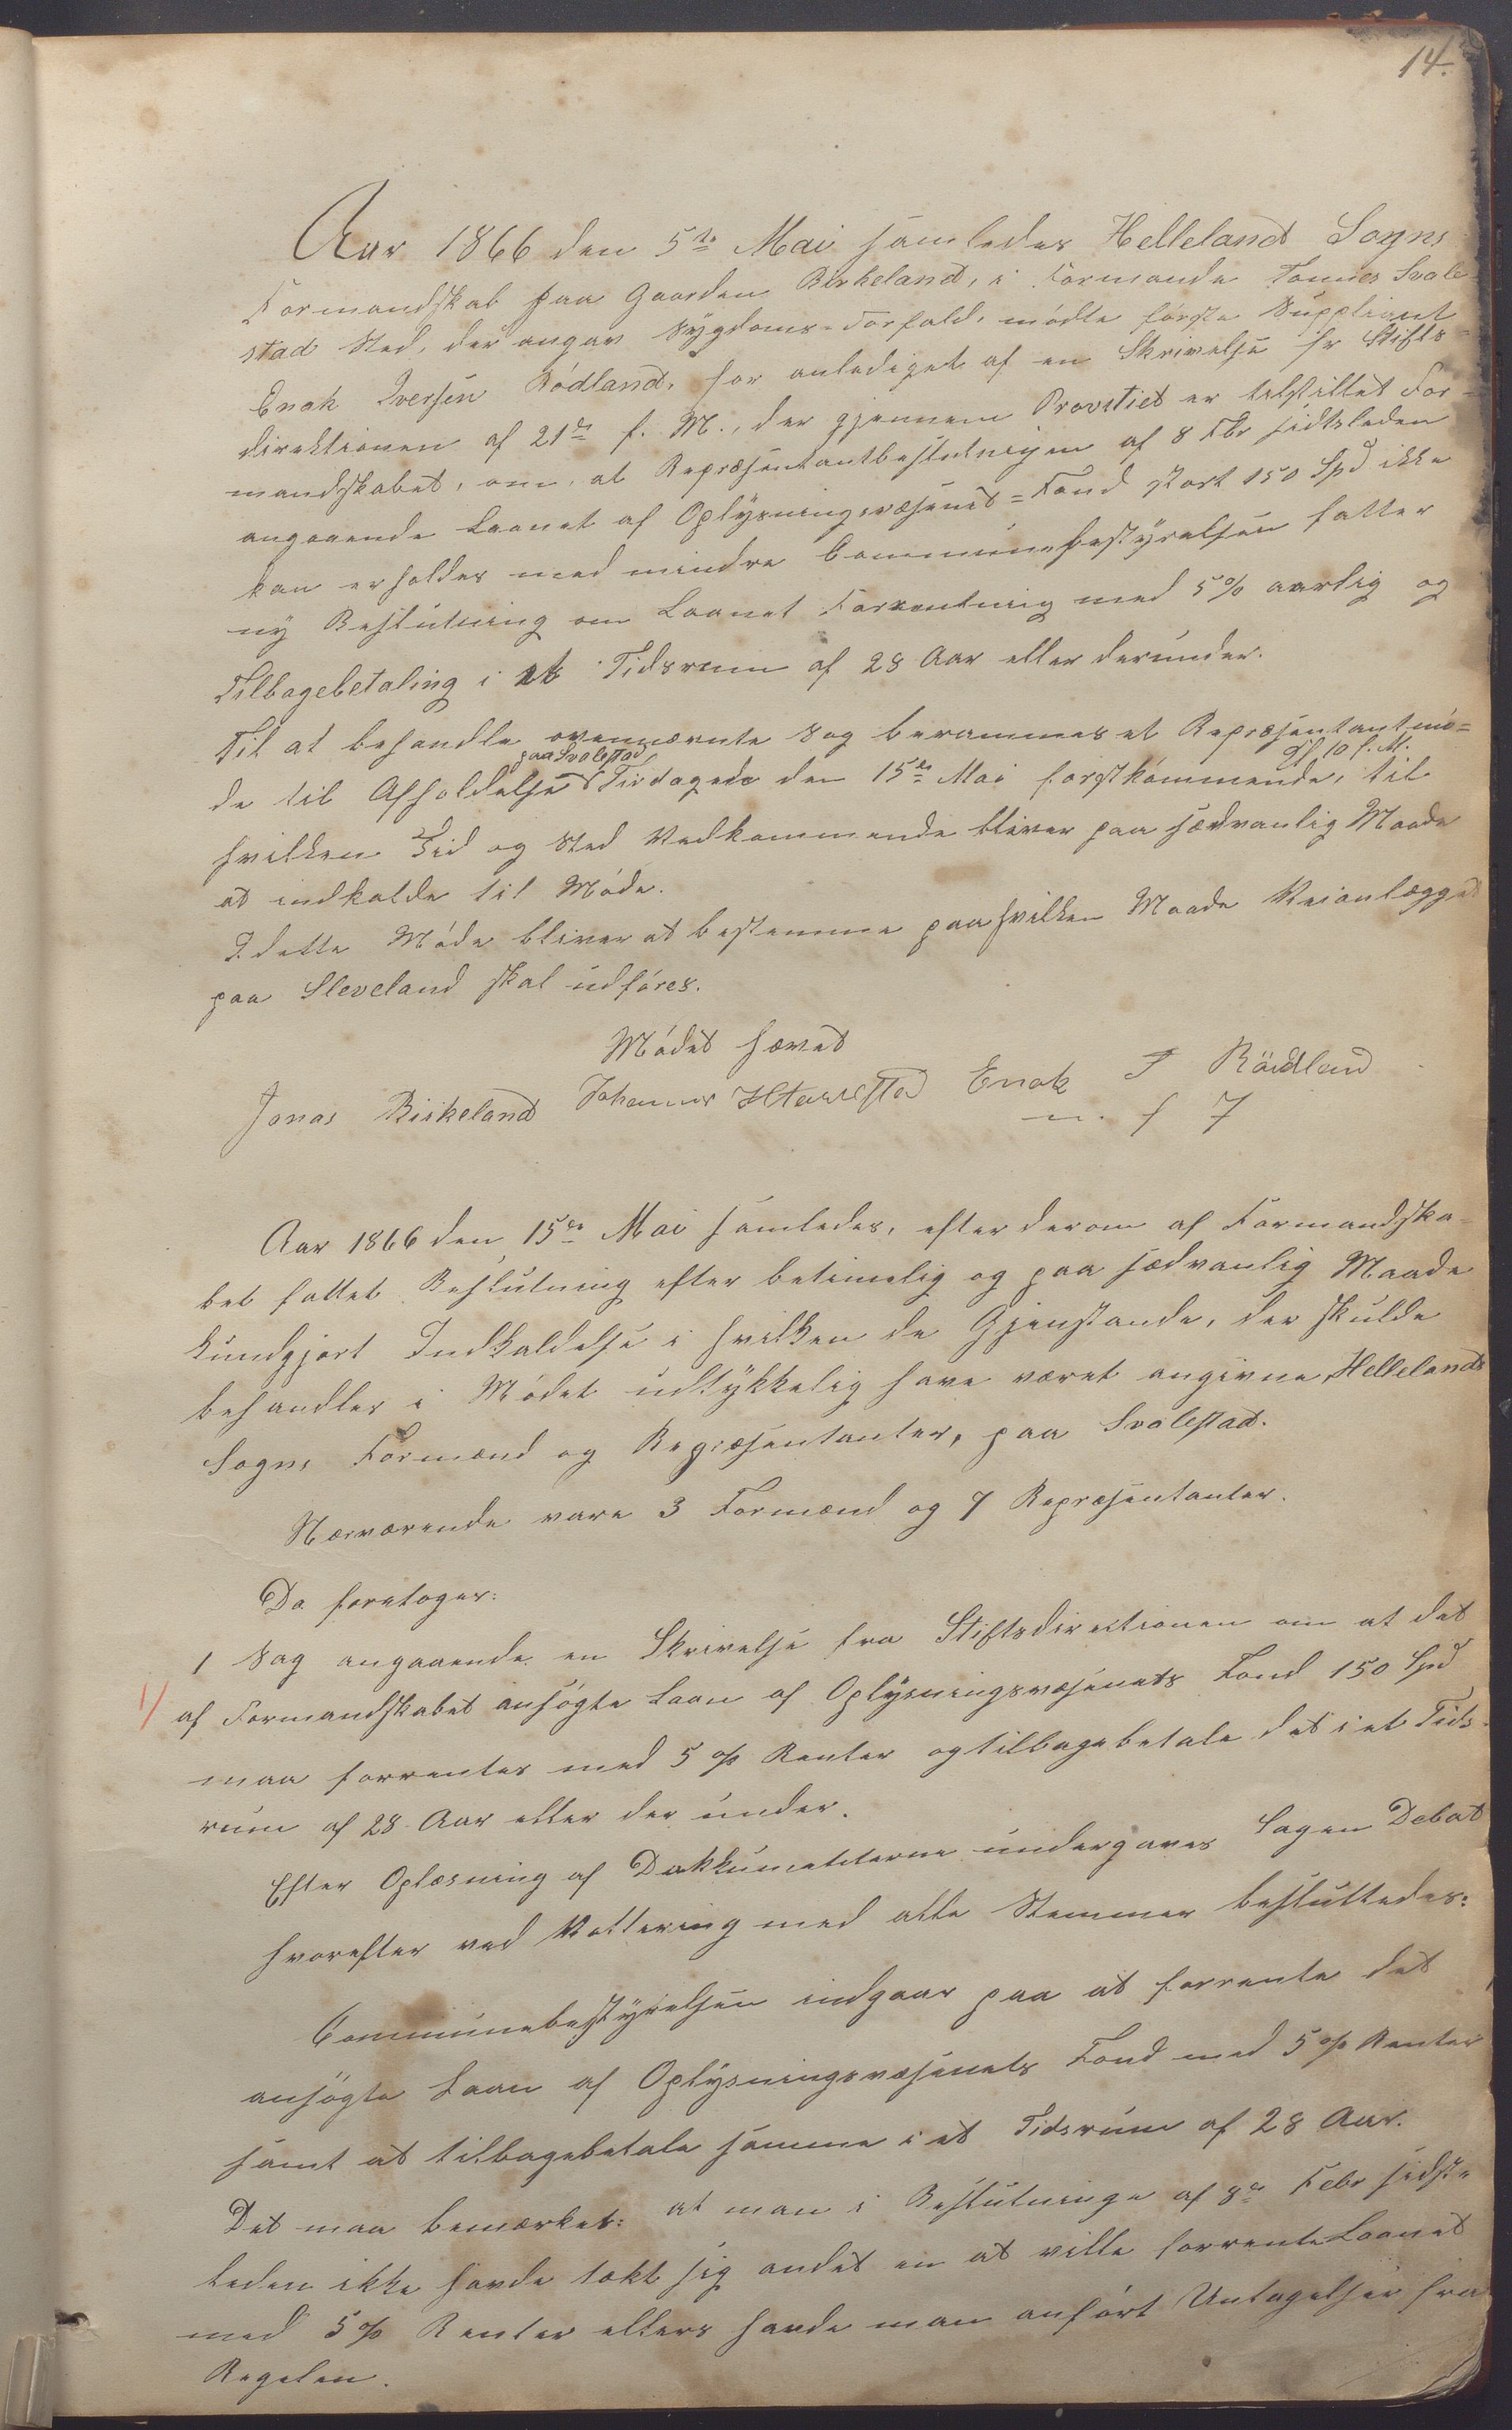 14.
Aar 1866 den 5te Mai samledes Helleland Sogns
Formandskab paa Gaarden Birkeland, i Formande Tonnes Svale-
stad Sted, der angav Sygdoms-Forfald, mødte første Suppliant
Enok Iversen Rødland, for anlediget af en Skrivelse fr Stifts-
direktionen af 21de f. M., der gjennem Provstiet er tilstillet For-
mandskabet, om, at Repræsentantbeslutnigen af 8 Fbr sidtsleden
angaaende Laanet af Oplysningsvæsenets-Fond stort 150 Spd ikke
kan erholdes med mindre Communebestyrelsen fatter
ny Beslutning om Laanet Forrentnig med 5% aarlig og
Tilbagebetaling i et Tidsrum af 28 Aar eller derunder.
Til at behandle ovennævnte Sag berammes et Repræsentantmø-
paa Svalestad Kl 10 f. M.
de til Afholdelse Tirdagede den 15de Mai førstkommende, til
hvilken Tid og Sted Vedkommende bliver paa sædvanlig Maade
at indkalde til Møde.
I dette Møde bliver at bestemme paa hvilken Maade Veianlægget
paa Sleveland skal udføres.
Mødet hævet
Jonas Birkeland Johannes Enok I Röidland
m. f
Aar 1866 den 15de Mai samledes, efter derom af Formandska-
bet fattet Beslutning efter betimelig og paa sædvanlig Maade
kundgjort Indkaldelse i hvilken de Gjenstande, der skulde
behandles i Mødet udtykkelig have været angivne, Hellelands
Sogns Formænd og Repræsentanter, paa Svalestad.
Nærværende vare 3 Formænd og 7 Repræsentanter.
Da foretoges:
1 Sag angaaende en Skrivelse fra Stiftsdirektionen om at det
1/
af Formandskabet ansøgte Laan af Oplysningsvæsenets Fond 150 Spd
maa forrentes med 5 % Renter og tilbagebetale det i et Tids-
rum af 28 Aar eller der under.
Efter Oplæsning af Dokkumenterne undergaves Sagen Debat
hvorefter ved Vottering med alle Stemmer besluttedes:
Communebestyrelsen indgaar paa at forrente det
ansøgte Laan af Oplysningsvæsenets Fond med 5 % Renter
samt at tilbagebetale samme i et Tidsrum af 28 Aar.
Det maa bemærkes: at man i Beslutninge af 8de Febr sidst-
leden ikke havde tækt sig andet en at ville forrente Laanet
med 5 % Renter ellers havde man anført Untagelser fra
Regelen.